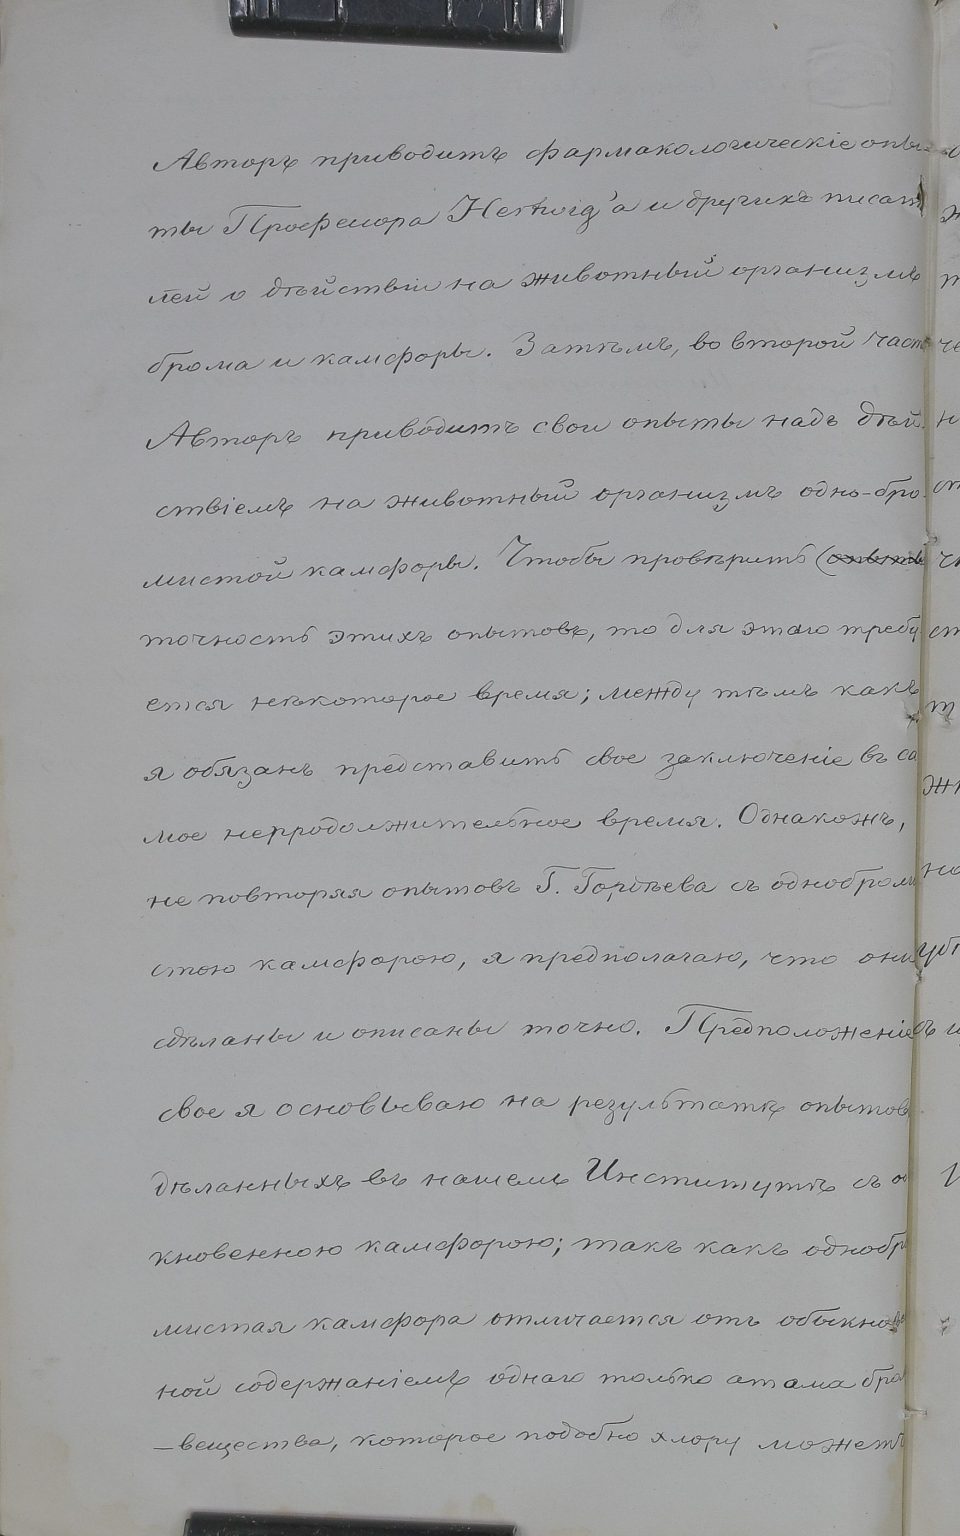 Авторъ приводитъ фармакологическіе опы-
ты Професора Hertwig'а и другихъ писат
лей о дѣйствіи на животный организмъ
брома и камфоры. Затѣмъ, во второй част
Авторъ приводитъ свои опыты надъ дѣй-
ствіемъ на животный организмъ одно-бро-
мистой камфоры. Чтобы провѣрить (опыты
точность этихъ опытовъ, то для этаго требу
ется нѣкоторое время; между тѣмъ какъ
я обязанъ представить свое заключеніе въ са
мое непродолжительное время. Однакожъ,
не повторяя опытовъ Г. Гордѣева съ одноброми
стою камфорою, я предполагаю, что они
сдѣланы и описаны точно. Предположеніе
свое я основываю на результатѣ опытовъ
дѣланныхъ въ нашемъ Институтѣ съ о
кновенною камфорою; такъ какъ однобр
мистая камфора отличается отъ обыкнов
ной содержаніемъ однаго только атама бро
-вещества, которое подобно хлору можетъ